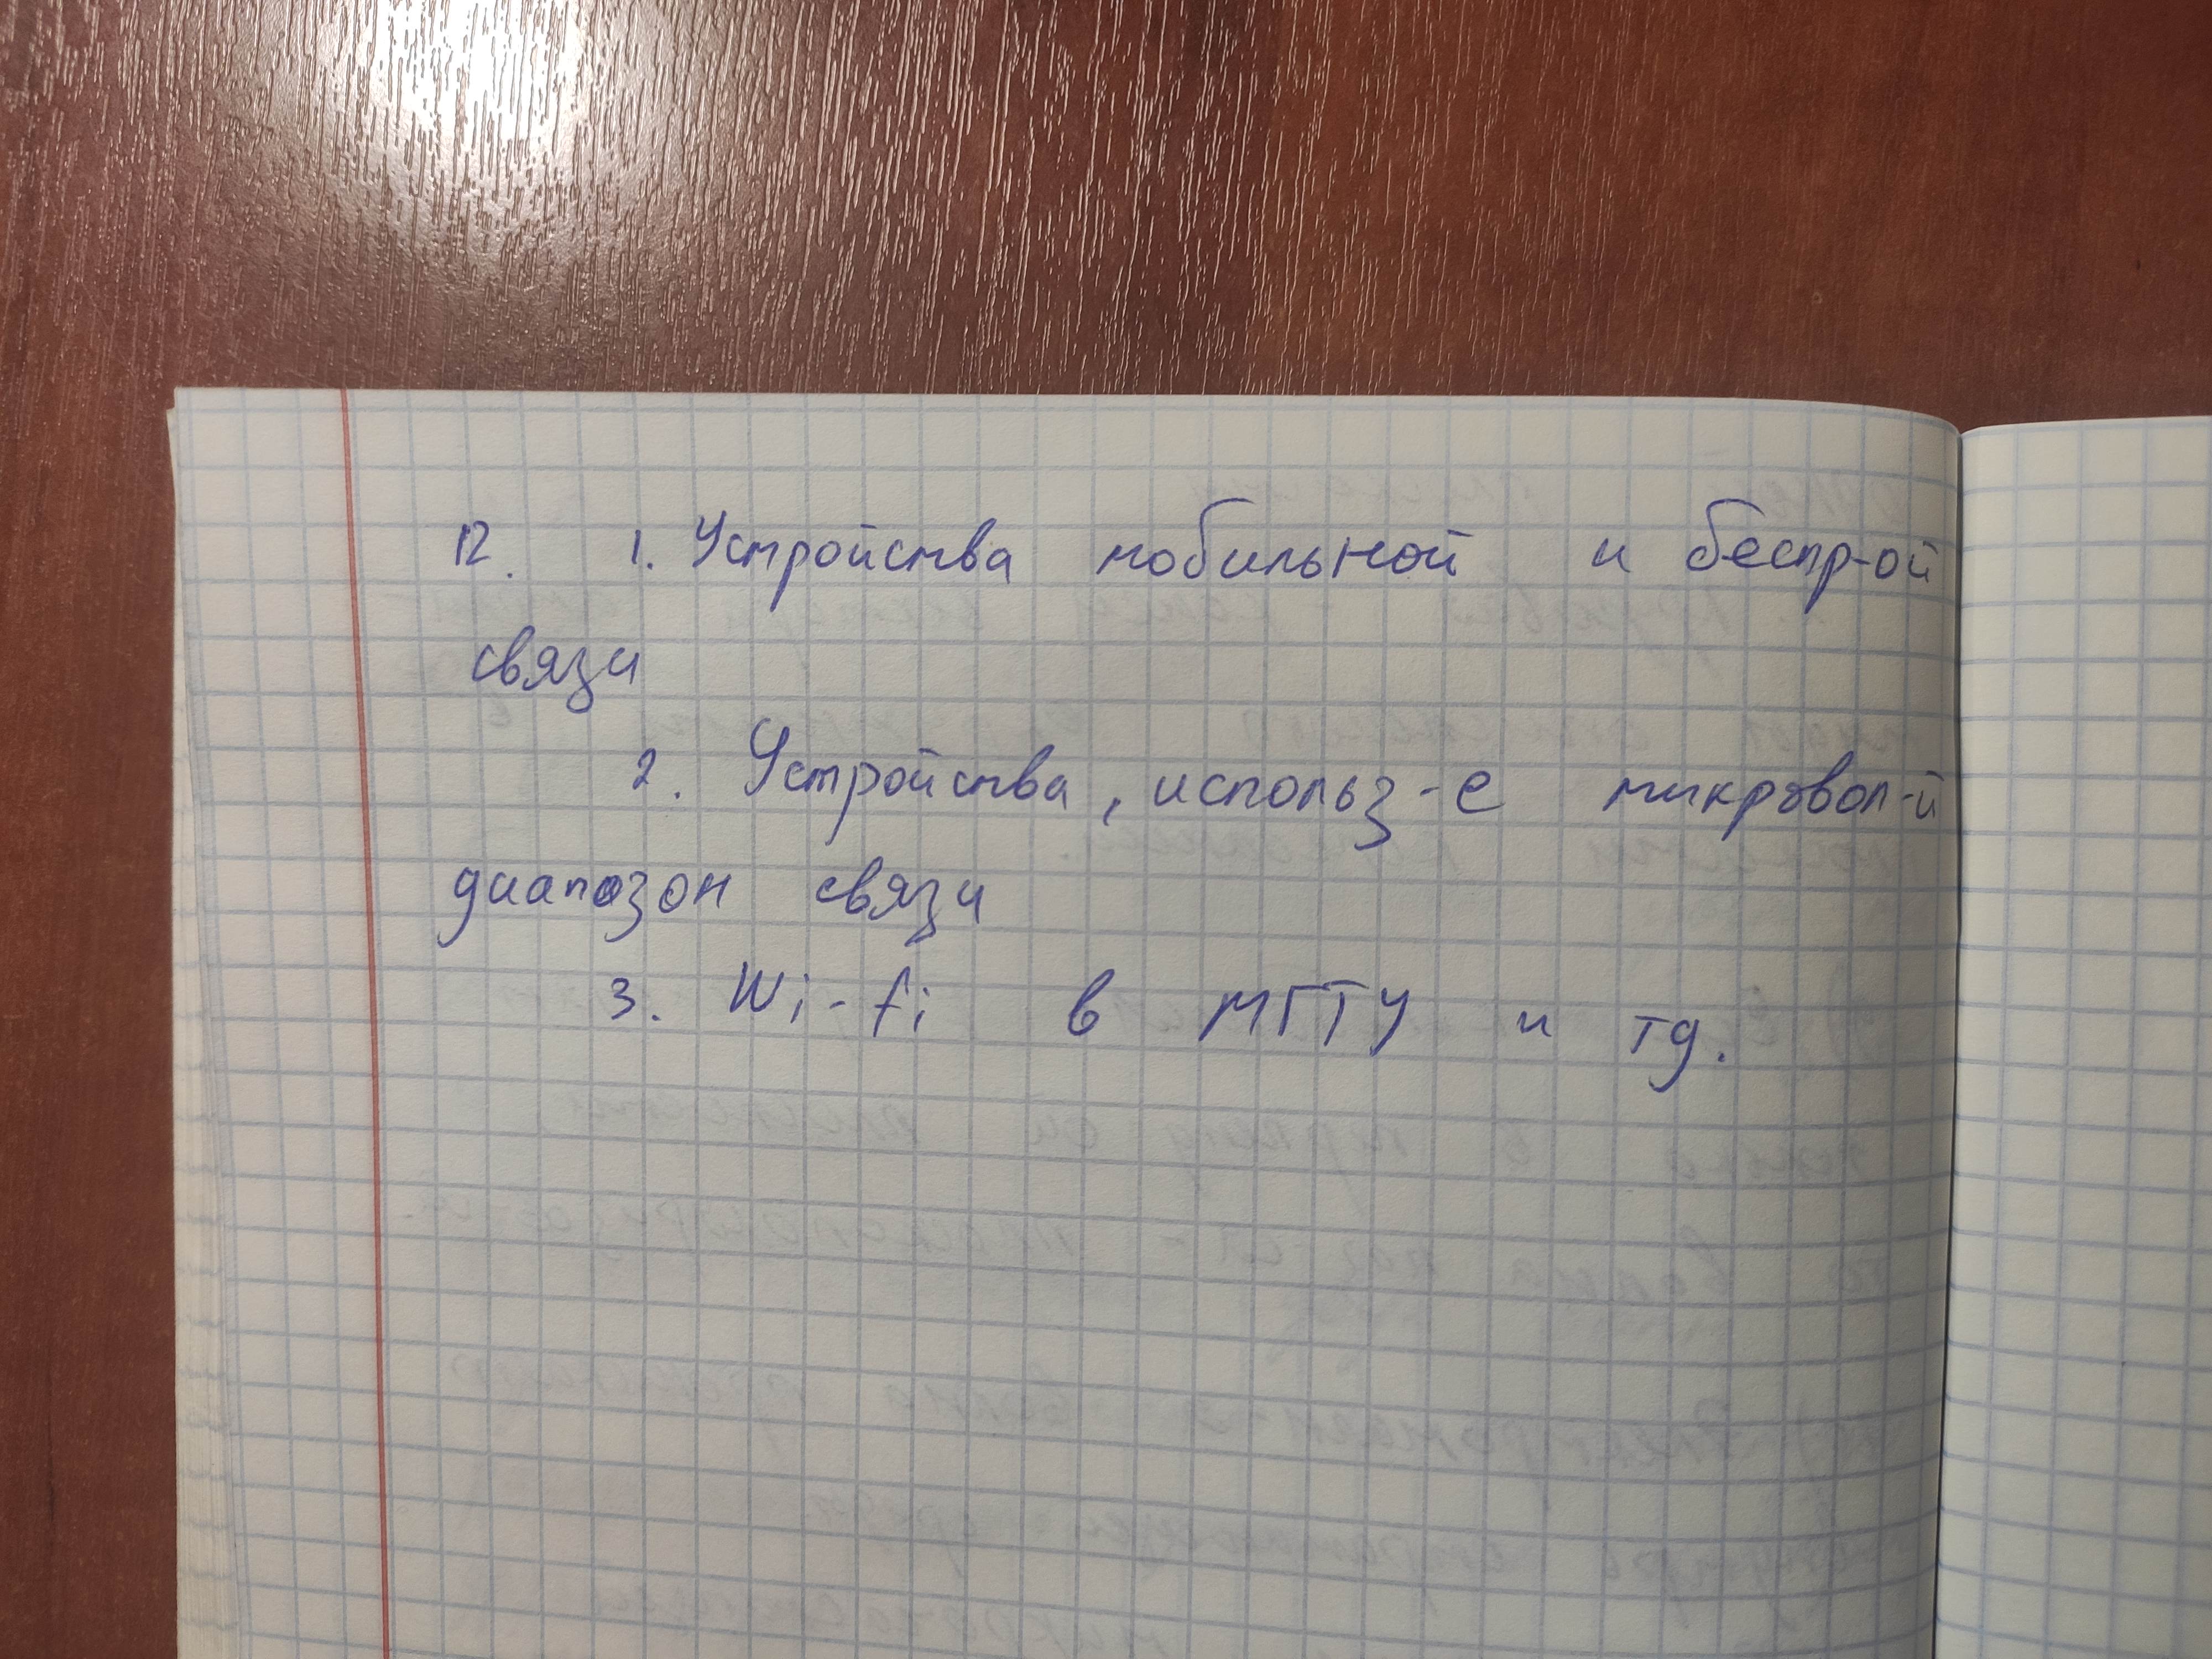 12. 1. Устройства мобильной и беспр-ой
связи
2. Устройства, использ-е микровол-й
диапазон связи
3. Wi-fi в МГТУ и тд.